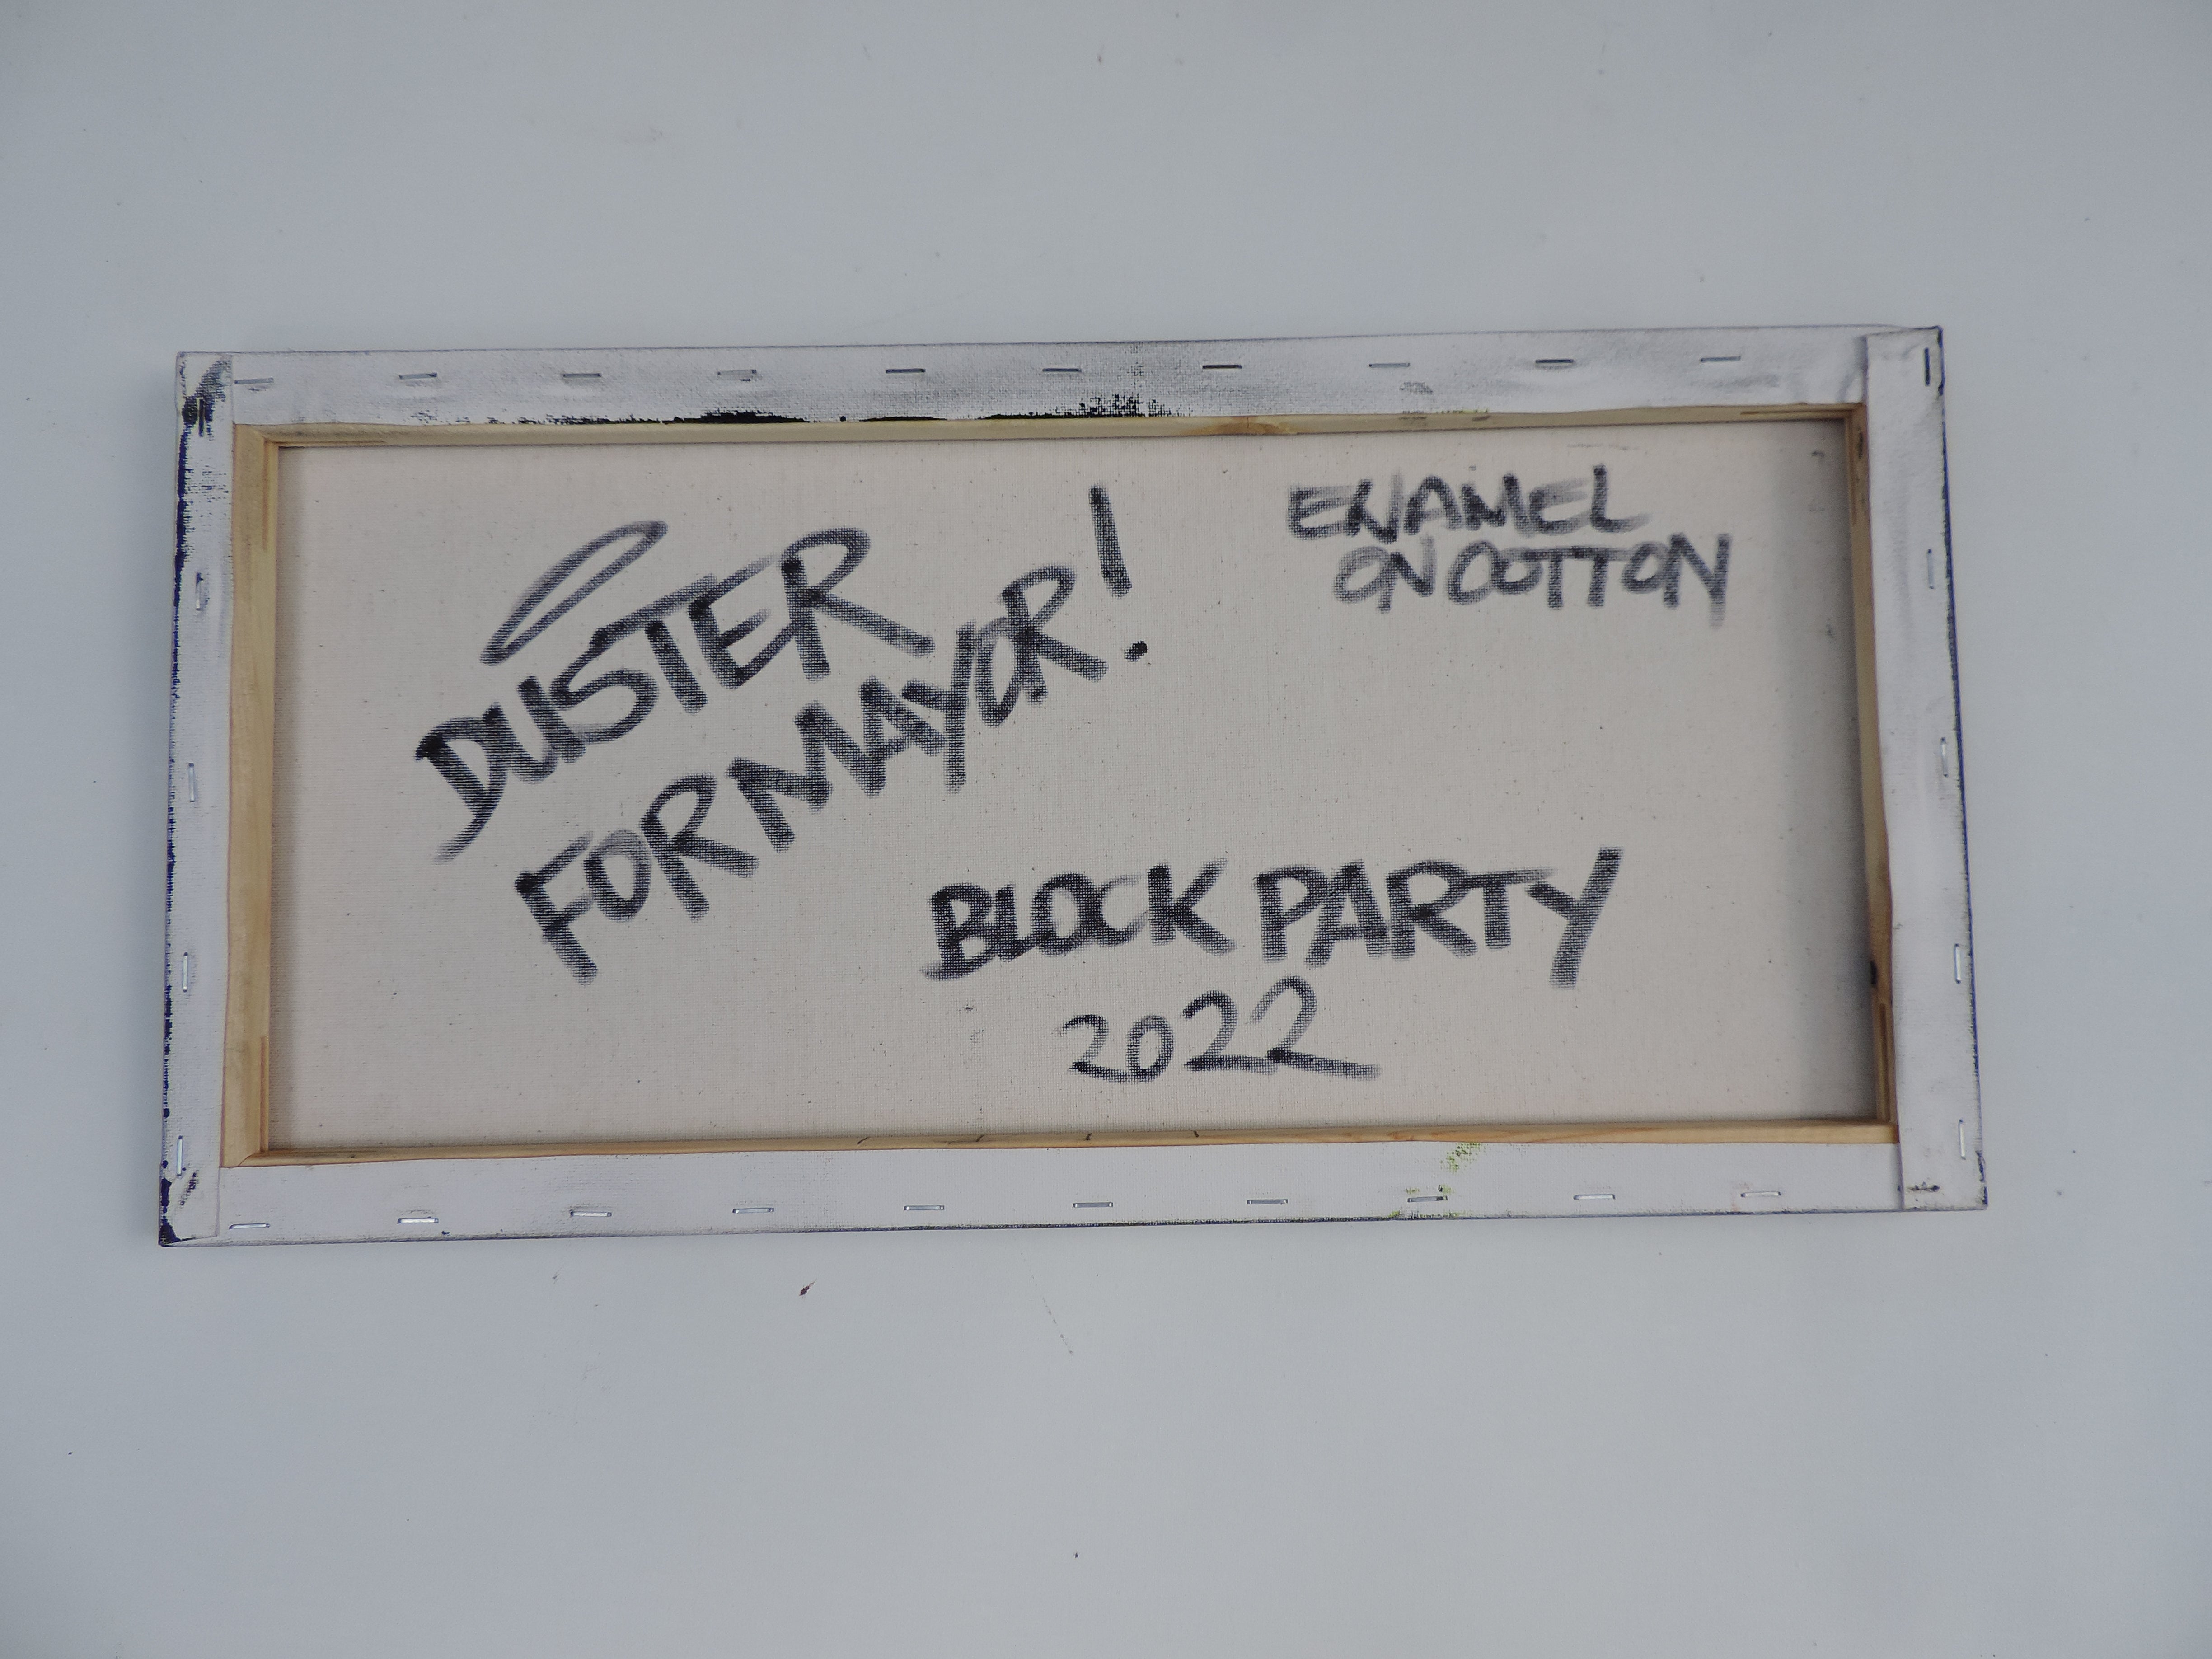 DUSTER
FOR MAYOR!
ENAMEL
ON COTTON
BLOCK PARTY
2022